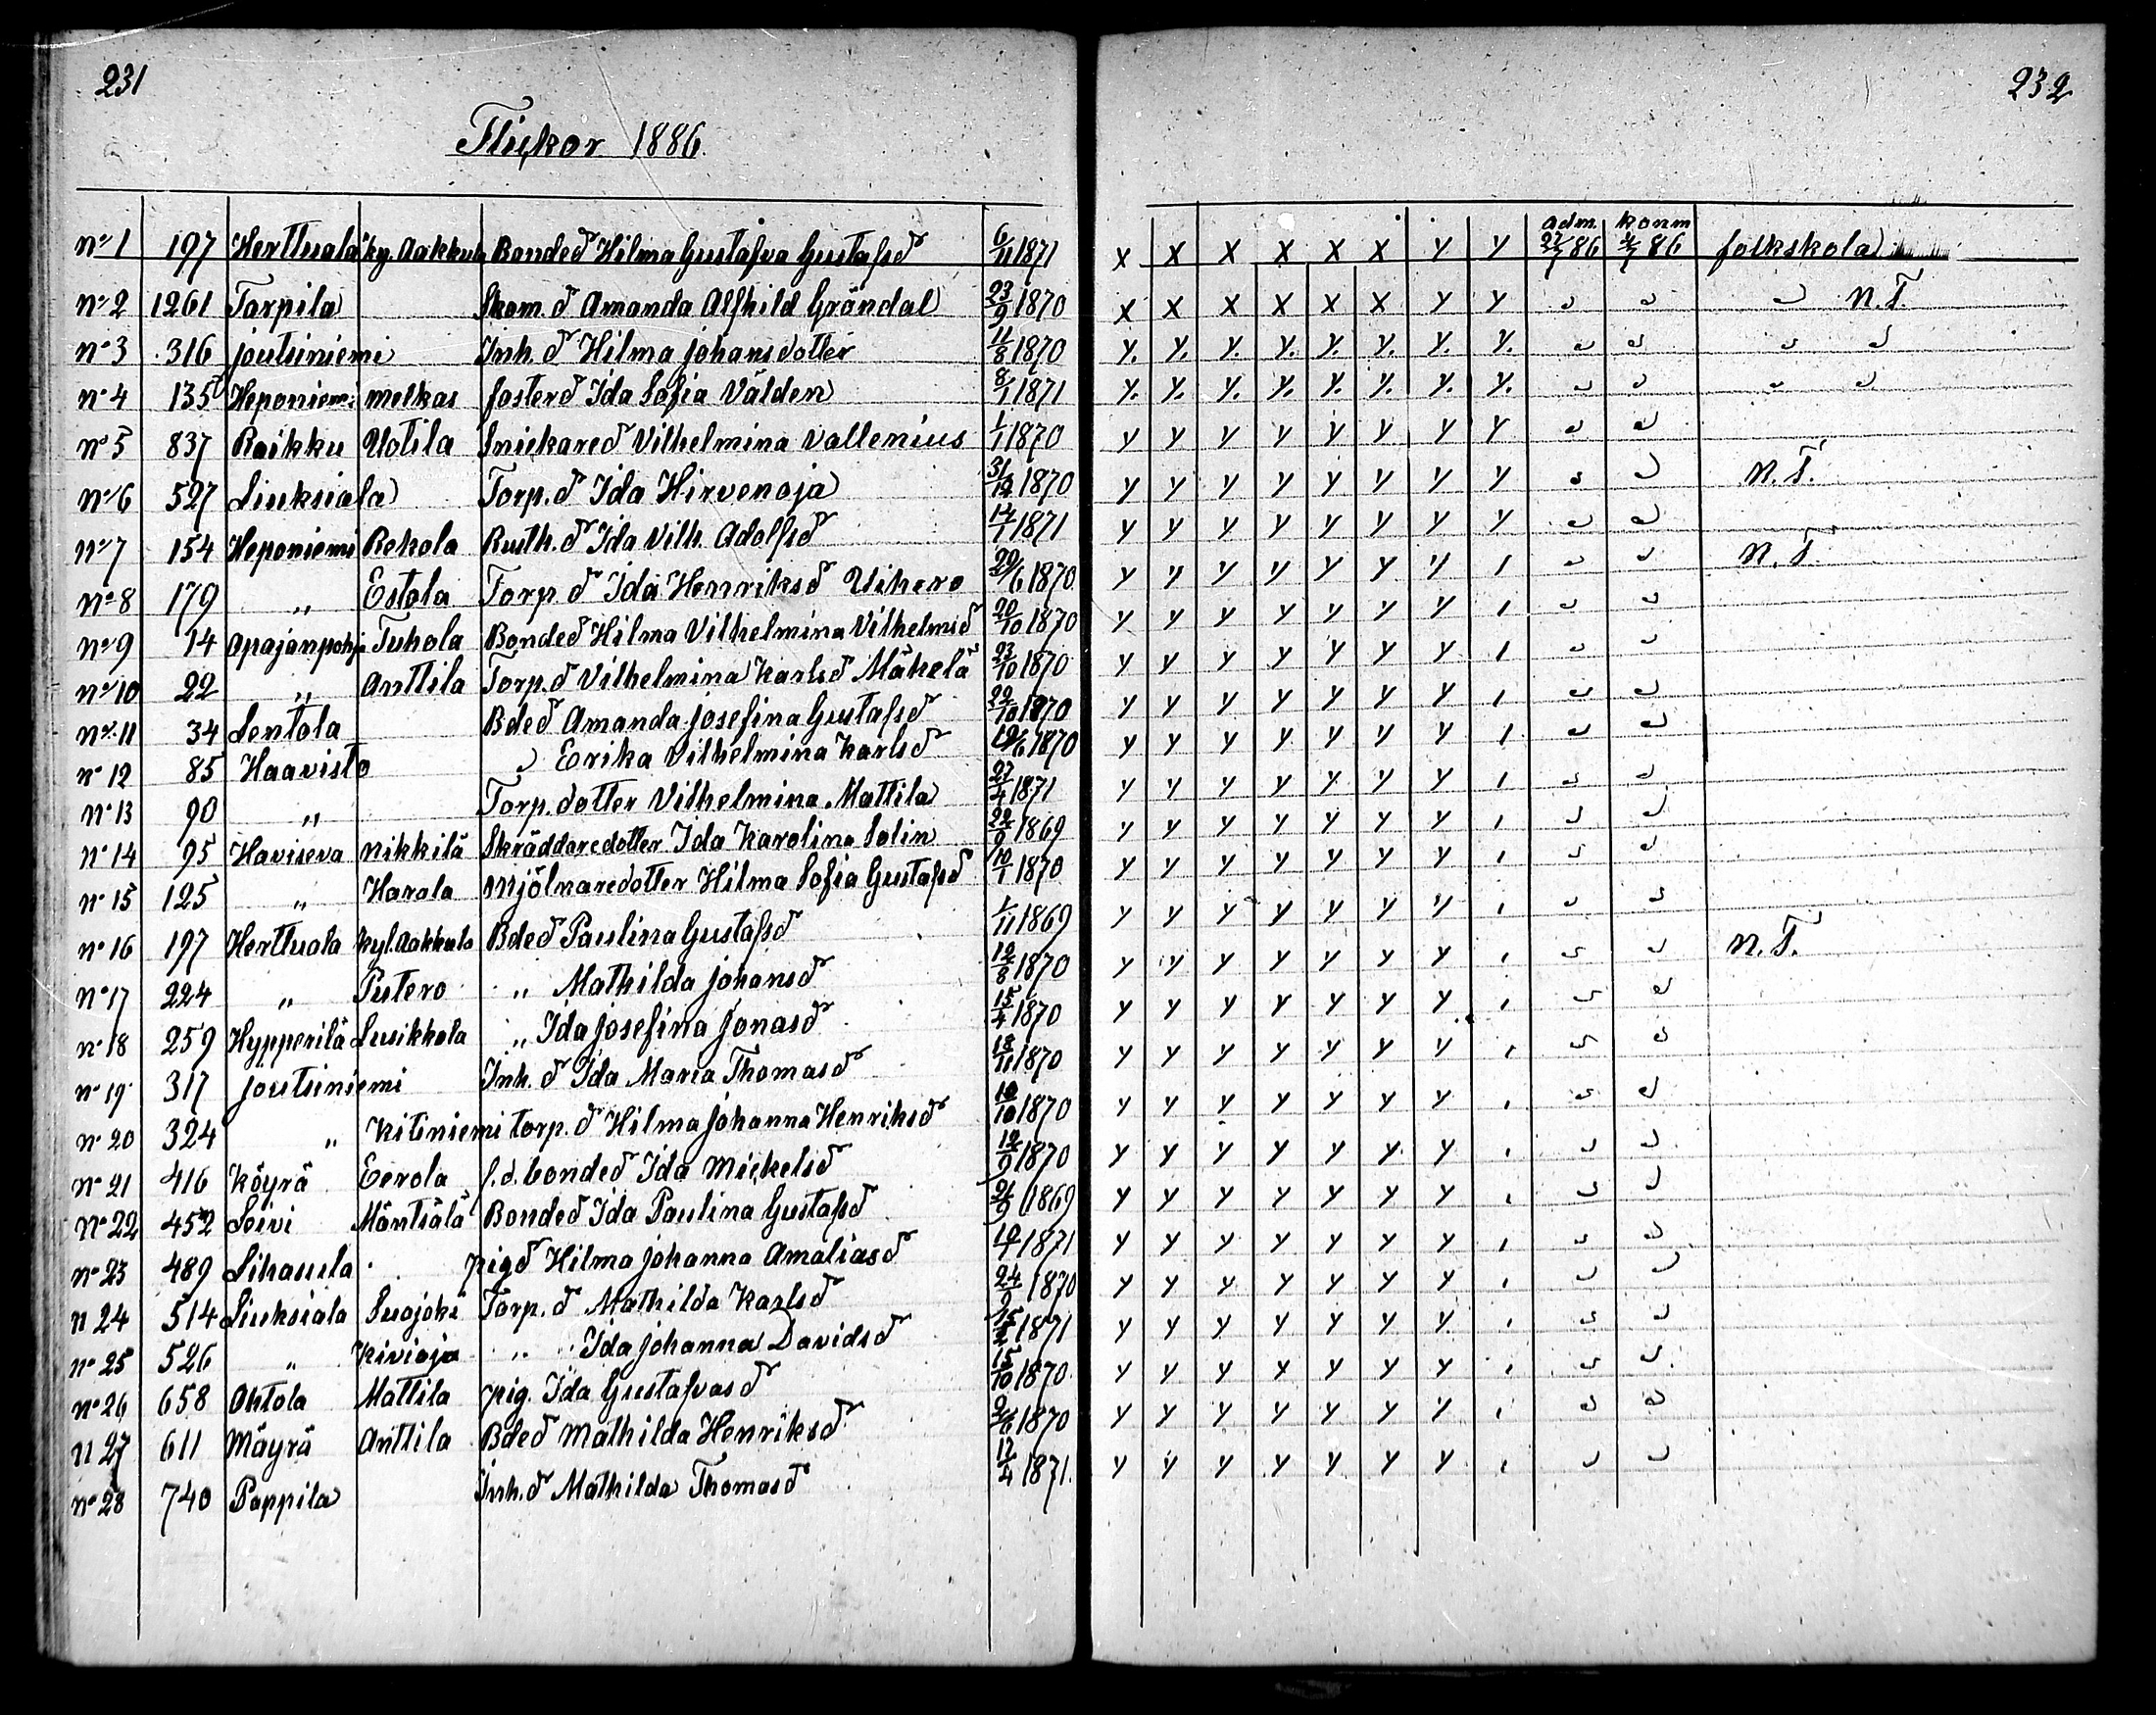 231
232
Flickor 1886.
adm. konm
no 1 197 Herttuala ky. Aakkula Bonded Hilma Gustafva Gustafsd 6/11 1871 x x x x x x y y 27/7 86 4/7 86 folkskola
no 2 1261 Tarpila Skom. d Amanda Alfhild Grändal 23/9 1870 x x x x x x y y " " " N.T.
no 3 316 Joutsiniemi Inh. d Hilma Johansdotter 11/8 1870 y. y. y. y. y. y. y. y. " " " "
no 4 135 Heponiemi Melkas fosterd Ida Sofia Välden 8/1 1871 y. y. y. y. y. y. y. y. " " " "
no 5 837 Raikku Uotila Snickared Vilhelmina Vallenius 1/1 1870 y y y y y y y y " "
no 6 527 Liuksiala Torp. d Ida Hirvenoja 31/12 1870 y y y y y y y y " " N.T.
no 7 154 Heponiemi Rekola Rusth. d Ida Vilh. Adolfsd 14/1 1871 y y y y y y y y " "
no 8 179 " Estola Torp. d Ida Henriksd Uihero 20/6 1870 y y y y y y y 1 " " N.T.
no 9 14 Apajanpohja Tuhola Bonded Hilma Vilhelmina Vilhelmsd 20/10 1870 y y y y y y y 1 " "
no 10 22 " Anttila Torp. d Vilhelmina Karlsd Mäkelä 23/10 1870 y y y y y y y 1 " "
no 11 34 Lentola Bded Amanda Josefina Gustafsd 22/10 1870 y y y y y y y 1 " "
no 12 85 Haavisto " Erika Vilhelmina Karlsd 19/6 1870 y y y y y y y 1 " "
no 13 90 " Torp. dotter Vilhelmina Mattila 27/4 1871 y y y y y y y 1 " "
no 14 95 Haviseva Nikkilä Skräddaredotter Ida Karolina Solin 22/9 1869 y y y y y y y 1 " "
no 15 125 " Harala Mjölnaredotter Hilma Sofia Gustafsd 10/1 1870 y y y y y y y 1 " "
no 16 197 Herttuala Kyl. Aakkula Bded Paulina Gustafsd 1/11 1869 y y y y y y y 1 " "
no 17 224 " Putero " Mathilda Johansd 12/8 1870 y y y y y y y 1 " " N.T.
no 18 259 Hypperilä Lusikkola " Ida Josefina Jonasd 15/4 1870 y y y y y y y 1 " "
no 19 317 Joutsiniemi Inh. d Ida Maria Thomasd 18/11 1870 y y y y y y y 1 " "
no 20 324 " Kitiniemi torp. d Hilma Johanna Henriksd 10/10 1870 y y y y y y y 1 " "
no 21 416 Köyrä Eerola f.d. bonded Ida Mickelsd 12/9 1870 y y y y y y y 1 " "
no 22 452 Leivi Mäntsälä Bonded Ida Paulina Gustafsd 21/9 1869 y y y y y y y 1 " "
no 23 489 Lihasula pigd Hilma Johanna Amaliasd 10/1 1871 y y y y y y y 1 " "
n 24 514 Liuksiala Suojoki Torp. d Mathilda Karlsd 24/9 1870 y y y y y y y 1 " "
no 25 526 " Kivioja " Ida Johanna Davidsd 1871 y y y y y y y 1 " "
no 26 658 Ohtola Mattila pig. Ida Gustafvasd 15/10 1870 y y y y y y y 1 " "
n 27 611 Mäyrä Anttila Bded Mathilda Henriksd 1870 y y y y y y y 1 " "
no 28 740 Pappila Inh. d Mathilda Thomasd 12/4 1871. y y y y y y y 1 " "